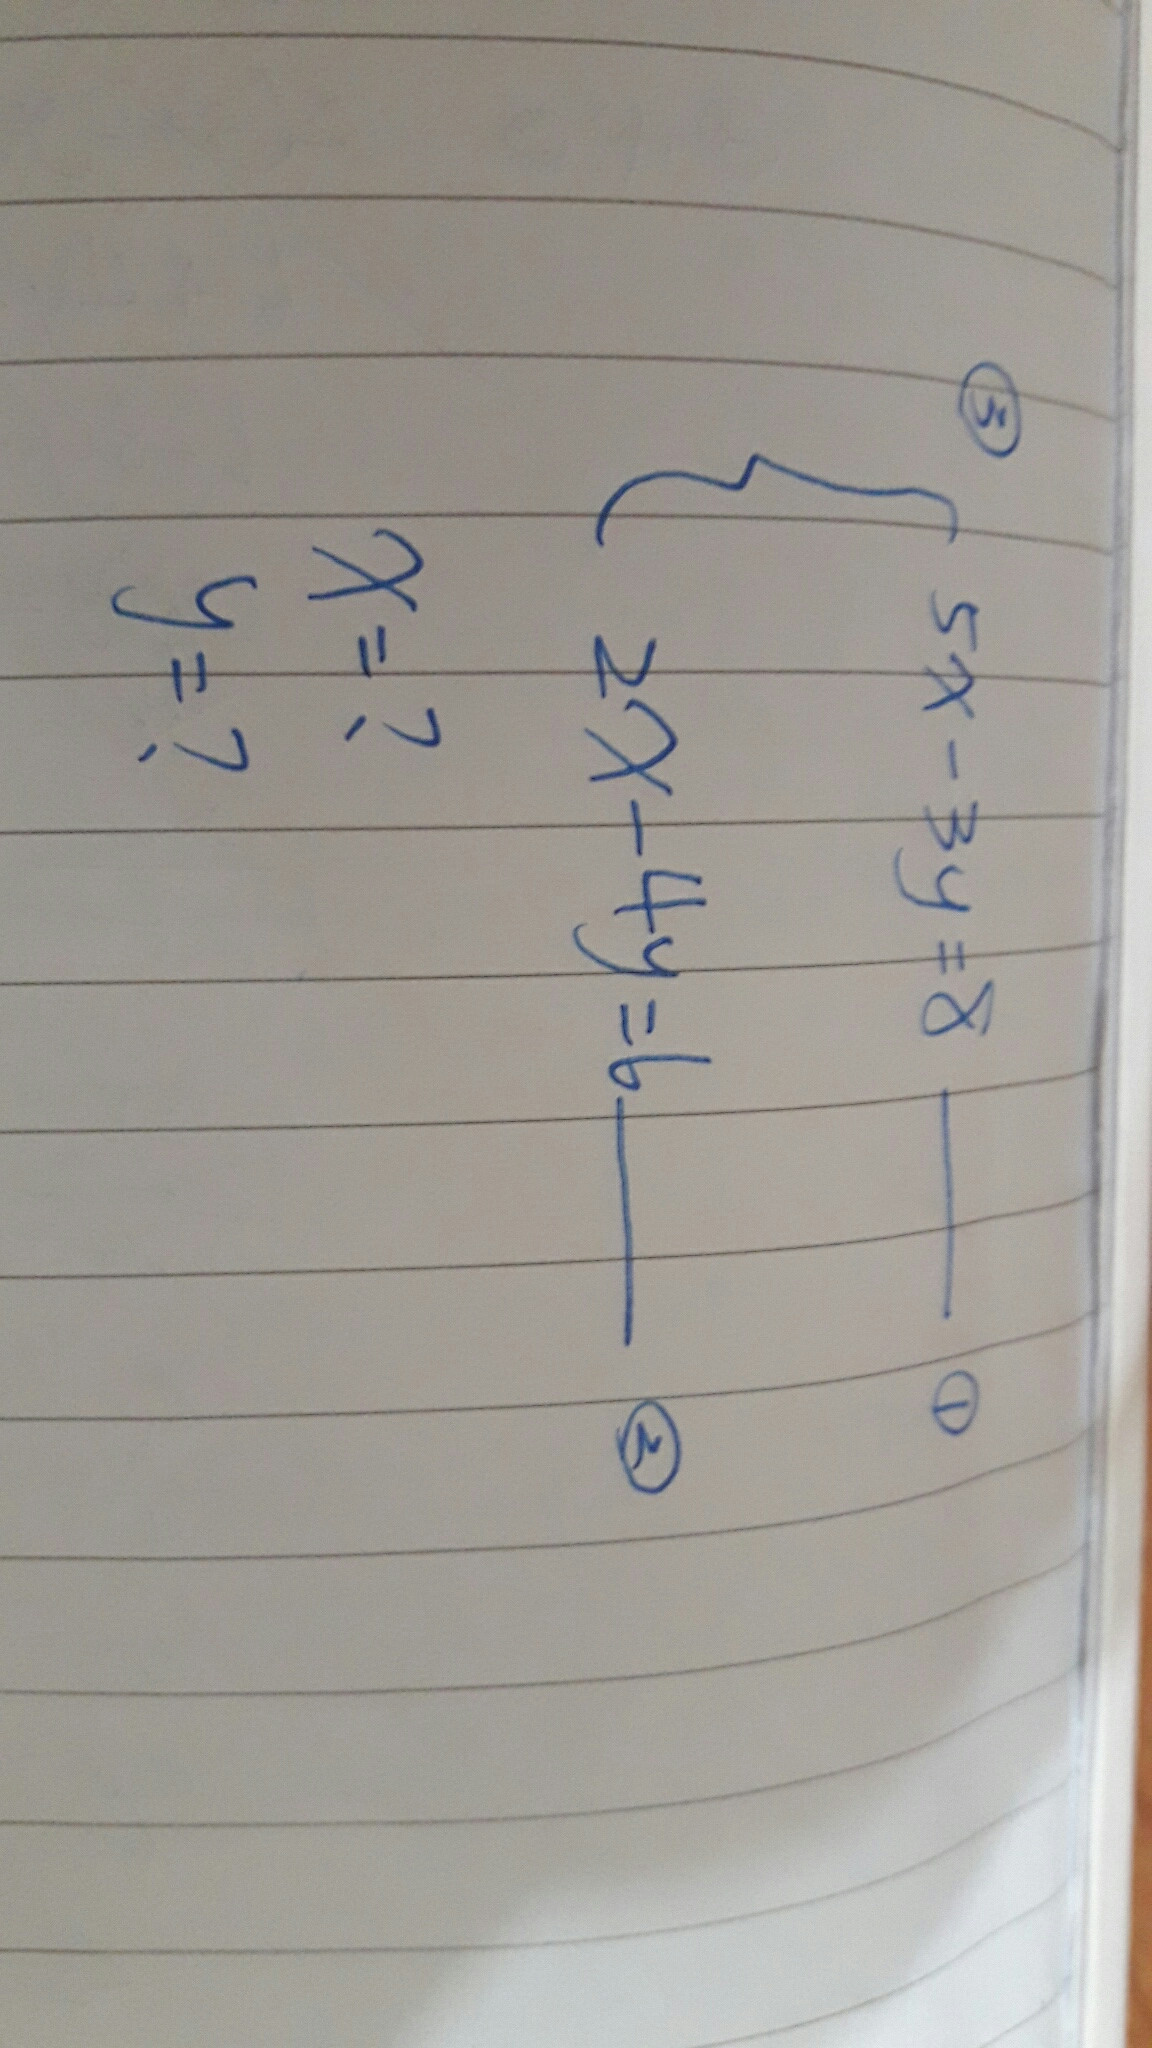 ③ 5x - 3y = 8 —— ①
2x - 4y = 6 —— ②
x = ?
y = ?